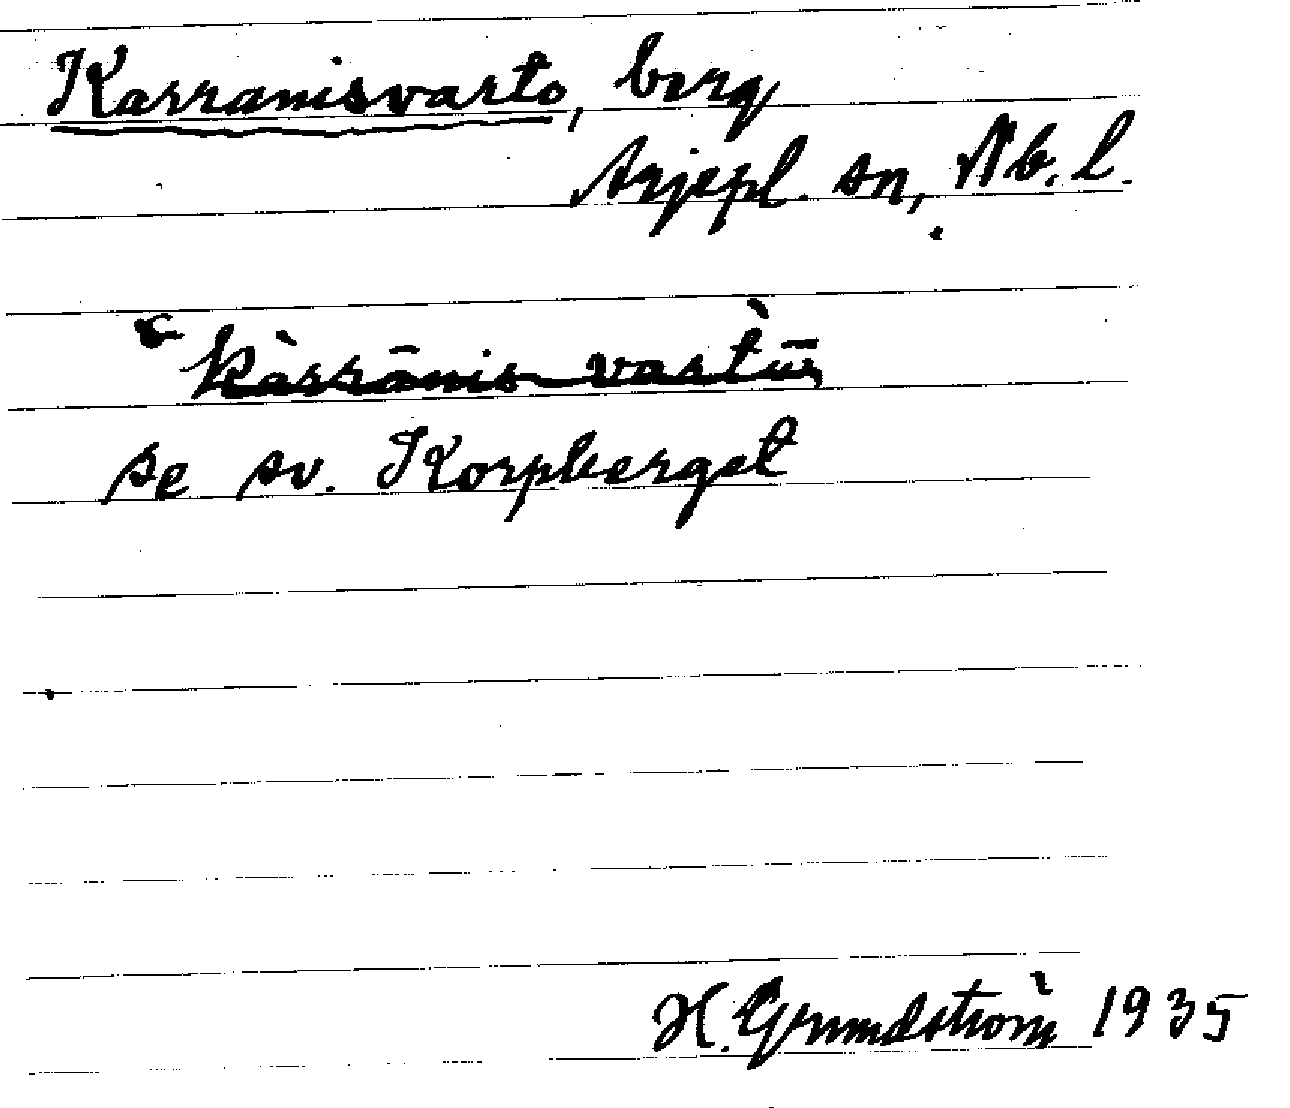 Karranisvarto, berg
Arjepl. sn, Nb. l.
kàrrānis-vàrtū
se sv. Korpberget
H. Grundström 1935